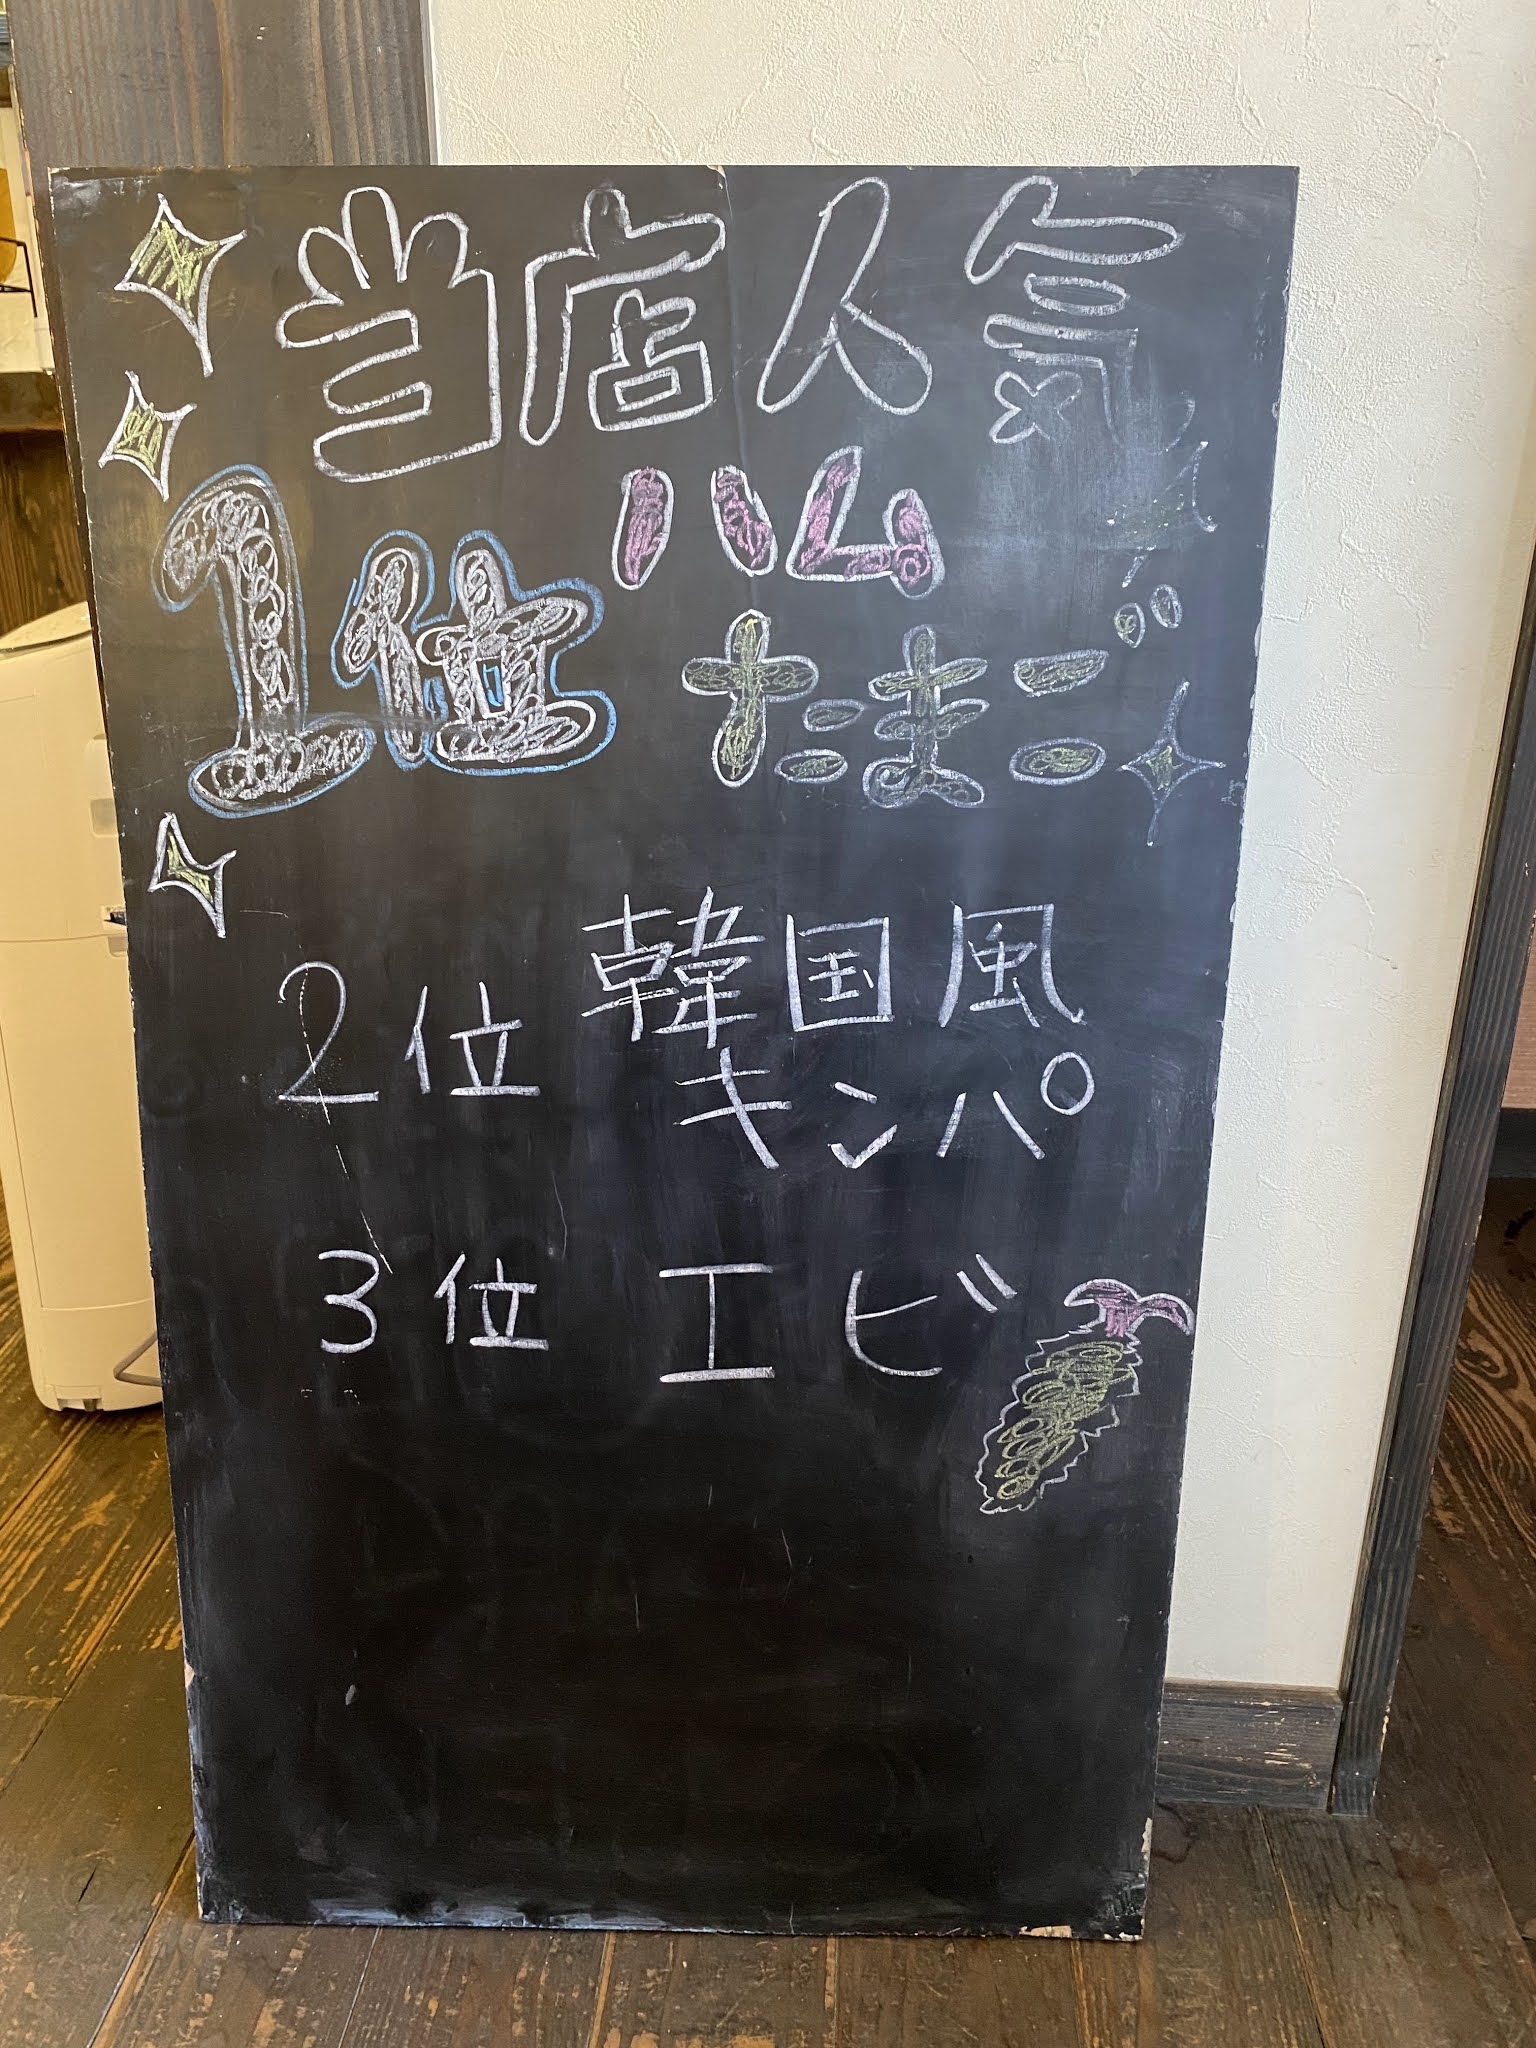 当店人気
1位 ハム
たまご
2位 韓国風
キンパ
3位 エビ